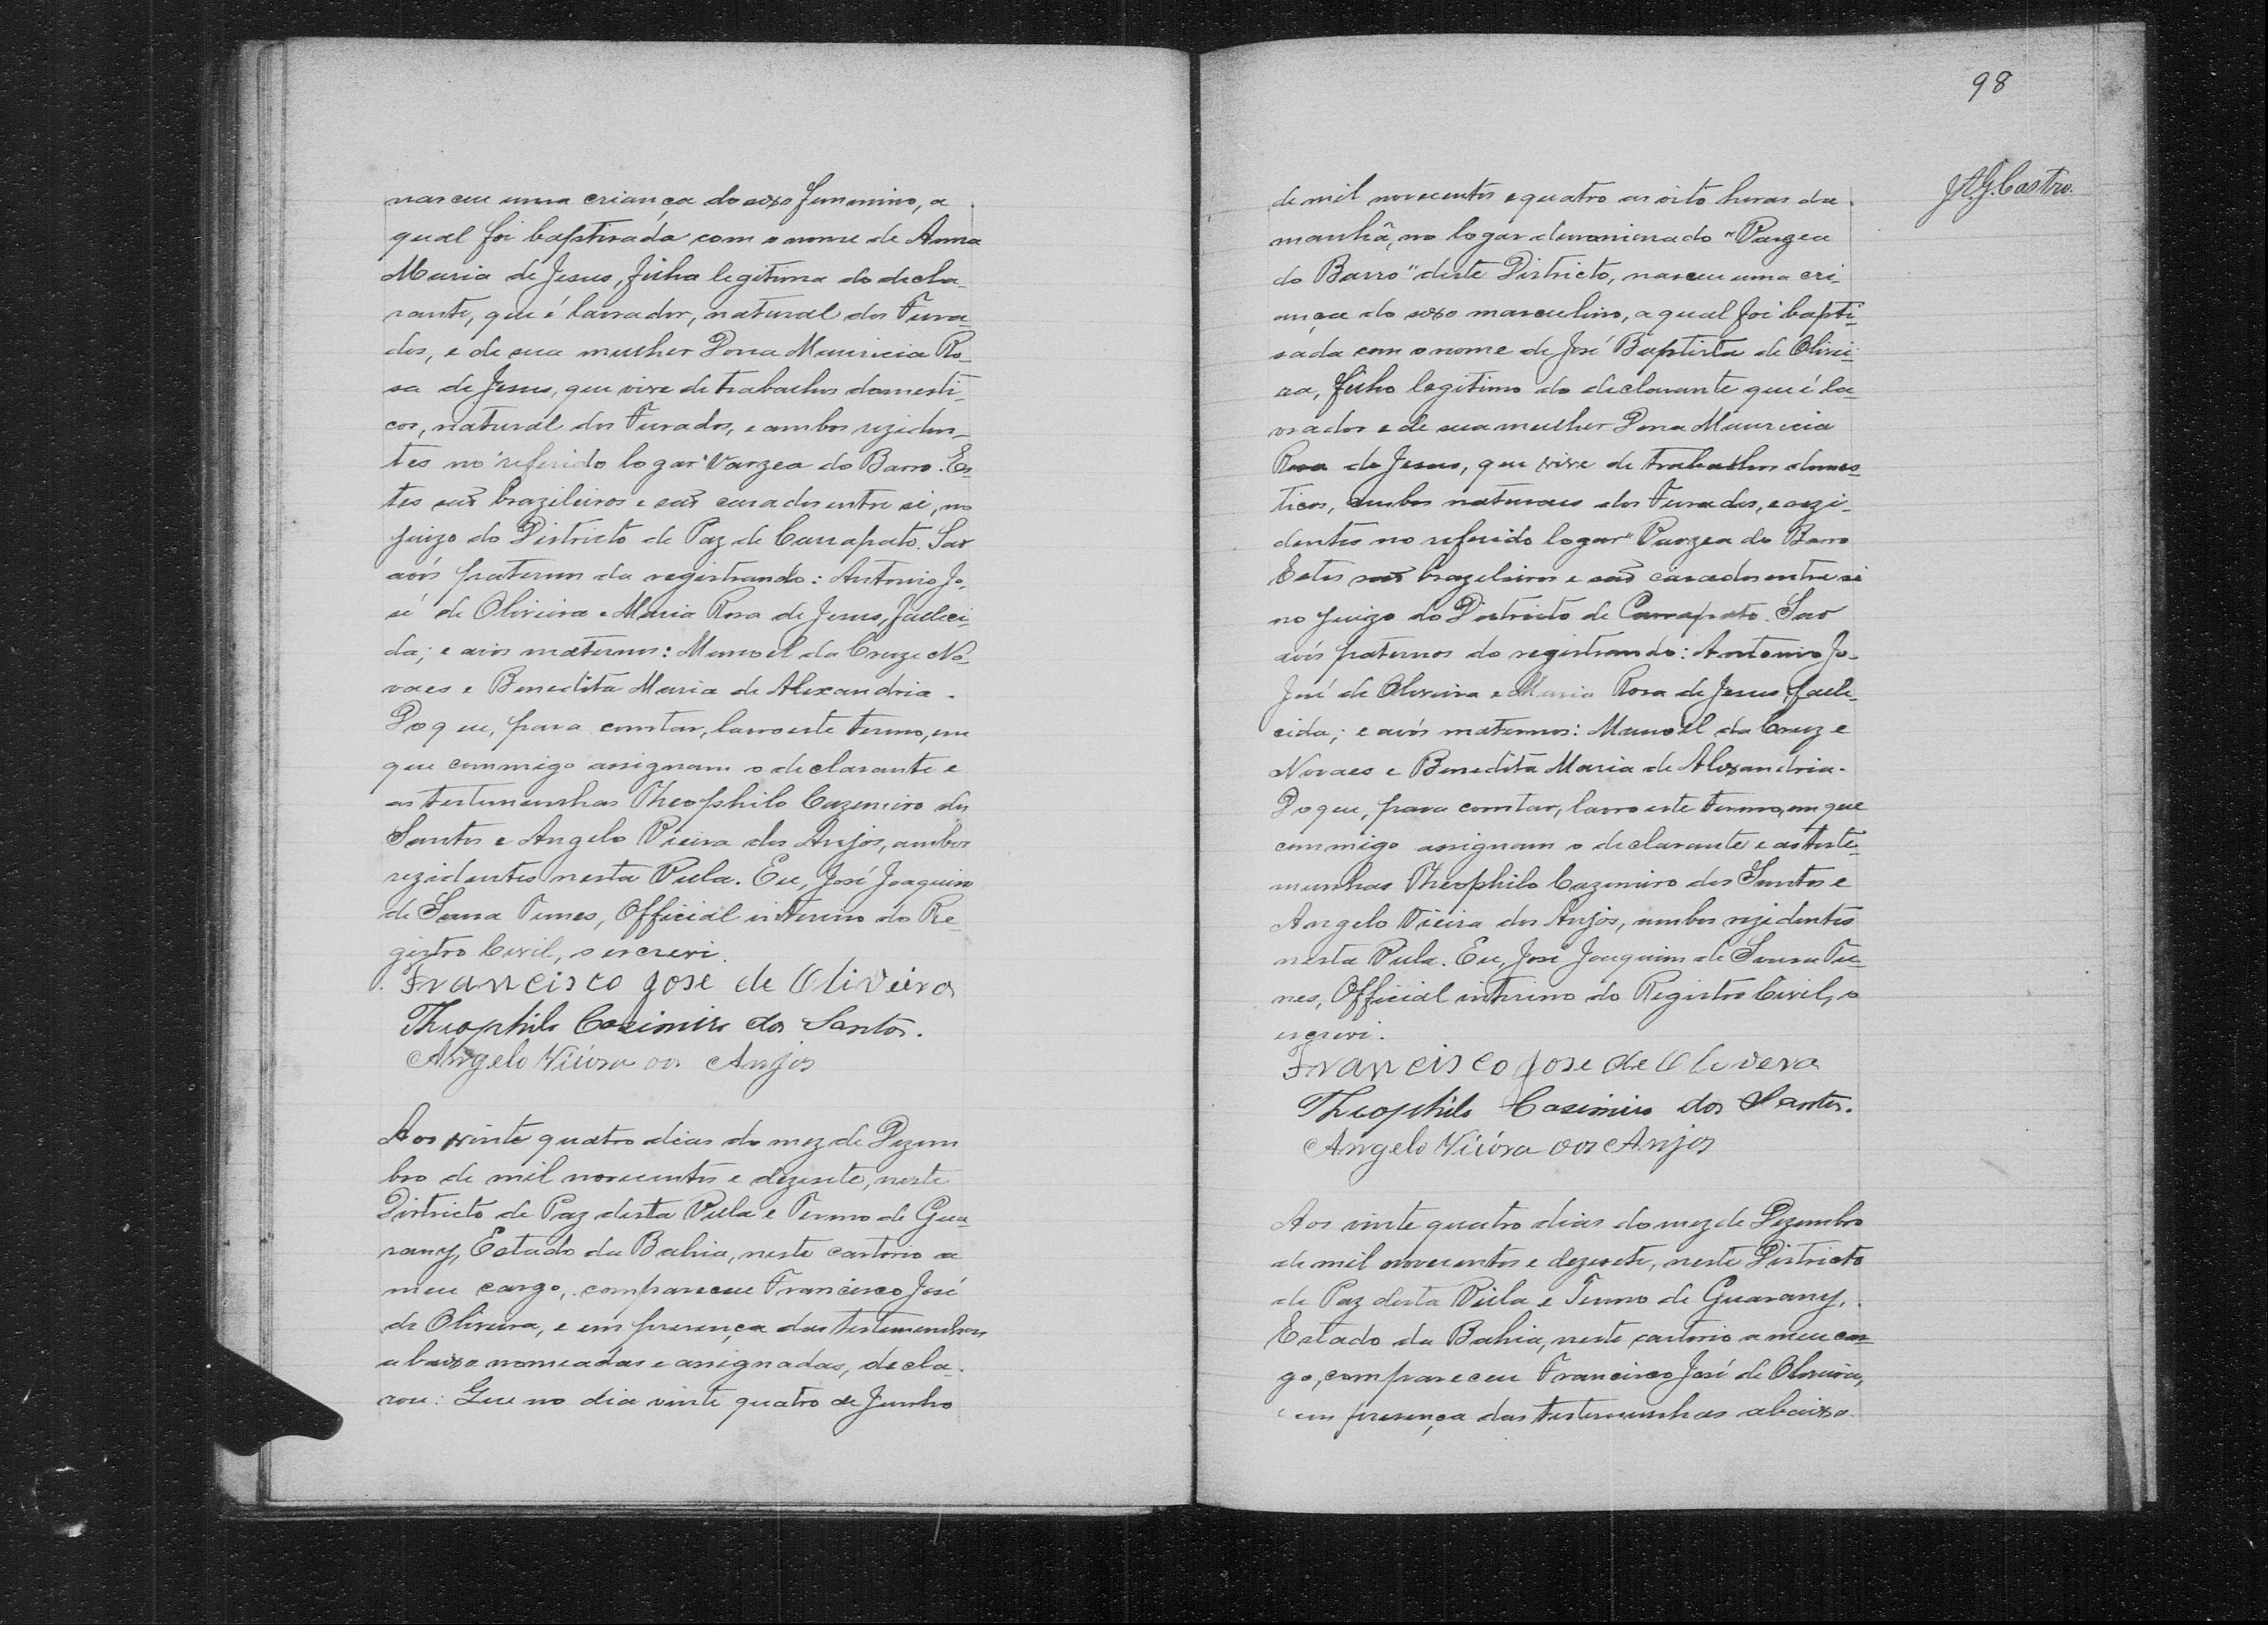 nasceu uma criança do sexo femenino, a
qual foi baptisada com o nome de Anna
Maria de Jesus, filha legitima do decla-
rante, que é lavrador, natural dos Fura-
dos, e de sua mulher Dona Mauricia Ro-
sa de Jesus, que vive de trabalhos domesti-
cos, natural dos Furados, e ambos reziden-
tes no referido logar "Varzea do Barro. Es-
tes são brazileiros e são casados entre si, no
juizo do Districto de Paz de Carrapato. Sao
avós paternos da registranda: Antonio Jo-
sé de Oliveira e Maria Rosa de Jesus, falleci-
da; e avós maternos: Manoel da Cruz e No-
vaes e Benedita Maria de Alexandria.
Do que, para constar, lavro este termo, em
que commigo assignam o declarante e
as testemunhas Theophilo Cazemiro dos
Santos e Angelo Vieira dos Anjos, ambos
rezidentes nesta Villa. Eu, José Joaquim
de Senna Tunes, Official interino do Re-
gistro Civil, o escrevi.
Francisco Jose de Oliveira
Theophilo Casimiro dos Santos.
Angelo Viúra dos Anjos
Aos vinte quatro dias do mez de Dezem
bro de mil novecentos e dezesete, neste
Districto de Paz desta Villa e Termo de Gua-
rany, Estado da Bahia, neste cartorio a
meu cargo, compareceu Francisco José
de Oliveira, e em presença das testemunhas
abaixo nomeadas e assignadas, decla-
rou: Que no dia vinte quatro de Junho
98
J.A.G. Castro.
de mil novecentos e quatro as oito horas da
manhã, no logar denominado "Varzea
do Barro" deste Districto, nasceu uma cri-
ança do sexo masculino, a qual foi bapti-
sada com o nome de José Baptista de Olivei-
ra, filho legitimo do declarante que é la-
vrador e de sua mulher Dona Mauricia
Rosa de Jesus, que vive de trabalhos domes-
ticos, ambos naturaes dos Furados, e rezi-
dentes no referido logar "Varzea do Barro
Estes são brazileiros e são casados entre si
no juizo do Districto de Carrapato. Sao
avós paternos do registrando: Antonio Jo-
José de Oliveira e Maria Rosa de Jesus, falle-
cida; e avós maternos: Manoel da Cruz e
Novaes e Benedita Maria de Alexandria.
Do que, para constar, lavro este termo, em que
commigo assignam o declarante e as teste-
munhas Theophilo Cazemiro dos Santos e
Angelo Vieira dos Anjos, ambos rezidentes
nesta Villa. Eu, José Joaquim de Senna Tu-
nes, Official interino do Registro Civil, o
escrevi.
Francisco Jose de Olivera
Theophilo Casimiro dos Santos.
Angelo Viúra dos Anjos
Aos vinte quatro dias do mez de Dezembro
de mil novecentos e dezesete, neste Districto
de Paz desta Villa e Termo de Guarany,
Estado da Bahia, neste cartorio a meu car-
go, compareceu Francisco José de Oliveira,
e em presença das testemunhas abaixo